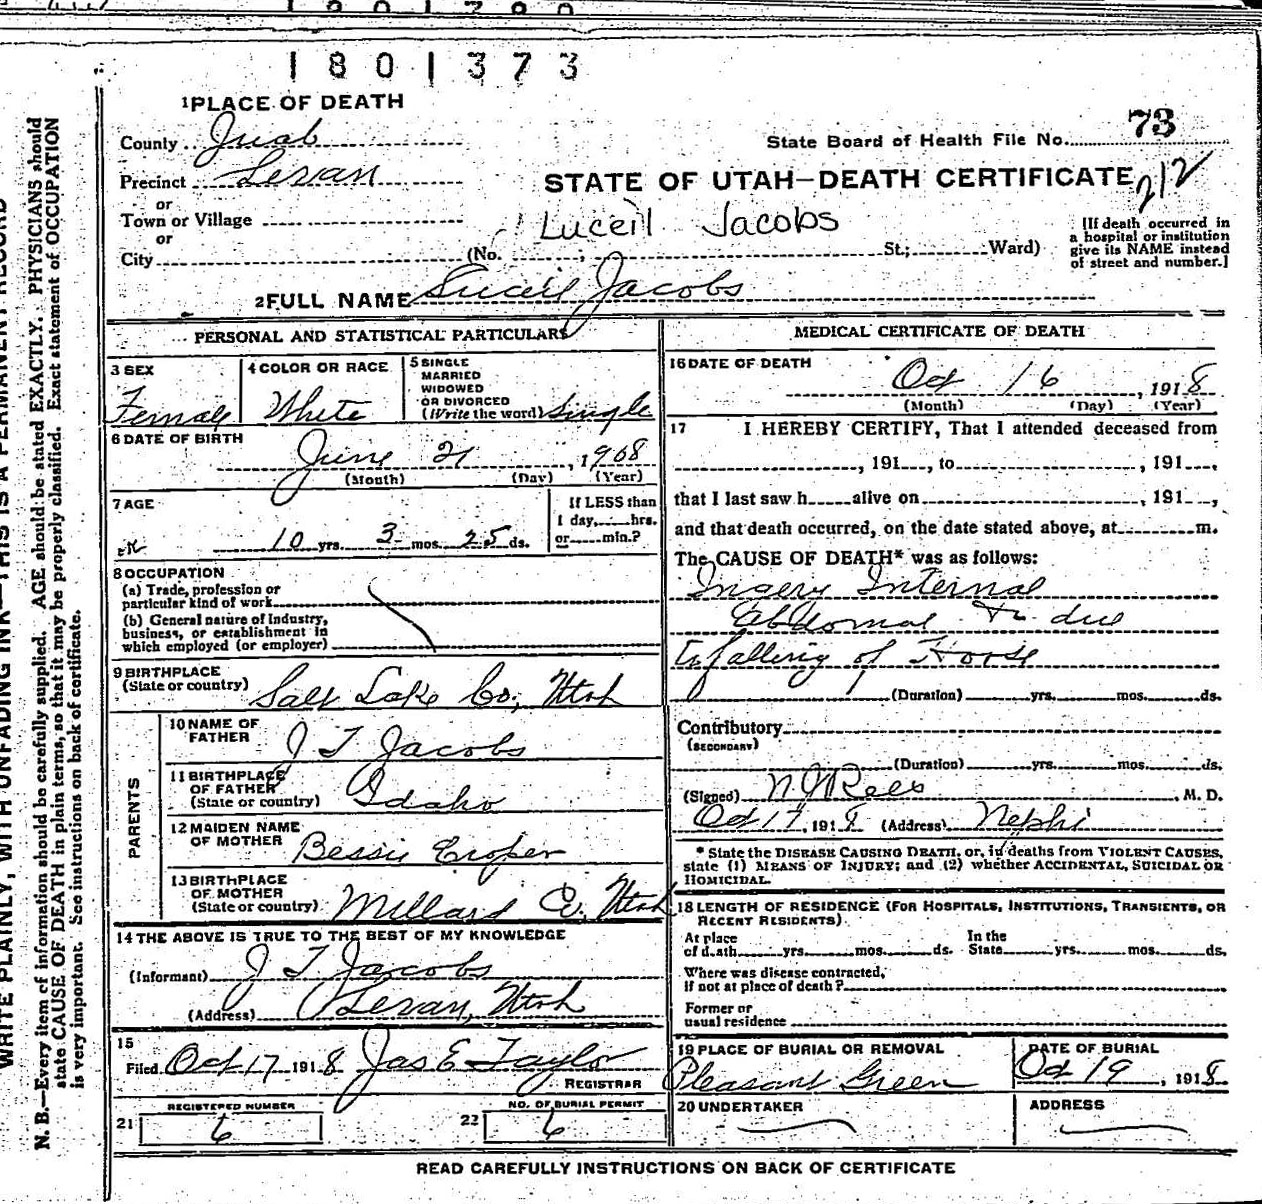 1801373
1 PLACE OF DEATH
County Juab
State Board of Health File No. 73
Precinct Levan
STATE OF UTAH—DEATH CERTIFICATE 212
or
Town or Village
Luceil Jacobs
or
City (No. St.; Ward)
[If death occurred in
a hospital or institution
give its NAME instead
of street and number.]
2 FULL NAME Luceil Jacobs
PERSONAL AND STATISTICAL PARTICULARS
3 SEX
Female
4 COLOR OR RACE
White
5 SINGLE
MARRIED
WIDOWED
OR DIVORCED
(Write the word) Single
6 DATE OF BIRTH
June 21, 1908
(Month) (Day) (Year)
7 AGE
10 yrs. 3 mos. 25 ds.
If LESS than
1 day, hrs.
or min.?
8 OCCUPATION
(a) Trade, profession or
particular kind of work
(b) General nature of Industry,
business, or establishment in
which employed (or employer)
9 BIRTHPLACE
(State or country) Salt Lake Co, Utah
PARENTS
10 NAME OF
FATHER J T Jacobs
11 BIRTHPLACE
OF FATHER
(State or country) Idaho
12 MAIDEN NAME
OF MOTHER Bessie Croper
13 BIRTHPLACE
OF MOTHER
(State or country) Millard Co, Utah
14 THE ABOVE IS TRUE TO THE BEST OF MY KNOWLEDGE
(Informant) J T Jacobs
(Address) Levan, Utah
15
Filed Oct 17 1918 Jas E Taylor
REGISTRAR
REGISTERED NUMBER
21 6
NO. OF BURIAL PERMIT
22 6
MEDICAL CERTIFICATE OF DEATH
16 DATE OF DEATH
Oct 16, 1918
(Month) (Day) (Year)
17 I HEREBY CERTIFY, That I attended deceased from
, 191 , to , 191 ,
that I last saw h alive on , 191 ,
and that death occurred, on the date stated above, at m.
The CAUSE OF DEATH* was as follows:
Ingery Internal
Abdomal due
to falling of Horse
(Duration) yrs. mos. ds.
Contributory
(SECONDARY)
(Duration) yrs. mos. ds.
(Signed) N J Rees, M. D.
Oct 17, 1918 (Address) Nephi
* State the DISEASE CAUSING DEATH, or, in deaths from VIOLENT CAUSES,
state (1) MEANS OF INJURY; and (2) whether ACCIDENTAL, SUICIDAL OR
HOMICIDAL.
18 LENGTH OF RESIDENCE (FOR HOSPITALS, INSTITUTIONS, TRANSIENTS, OR
RECENT RESIDENTS)
At place
of death yrs. mos. ds.
In the
State yrs. mos. ds.
Where was disease contracted,
if not at place of death?
Former or
usual residence
19 PLACE OF BURIAL OR REMOVAL
Pleasant Green
DATE OF BURIAL
Oct 19, 1918
20 UNDERTAKER
ADDRESS
READ CAREFULLY INSTRUCTIONS ON BACK OF CERTIFICATE
WRITE PLAINLY, WITH UNFADING INK—THIS IS A PERMANENT RECORD
N. B.—Every item of information should be carefully supplied. AGE should be stated EXACTLY. PHYSICIANS should
state CAUSE OF DEATH in plain terms, so that it may be properly classified. Exact statement of OCCUPATION
is very important. See instructions on back of certificate.